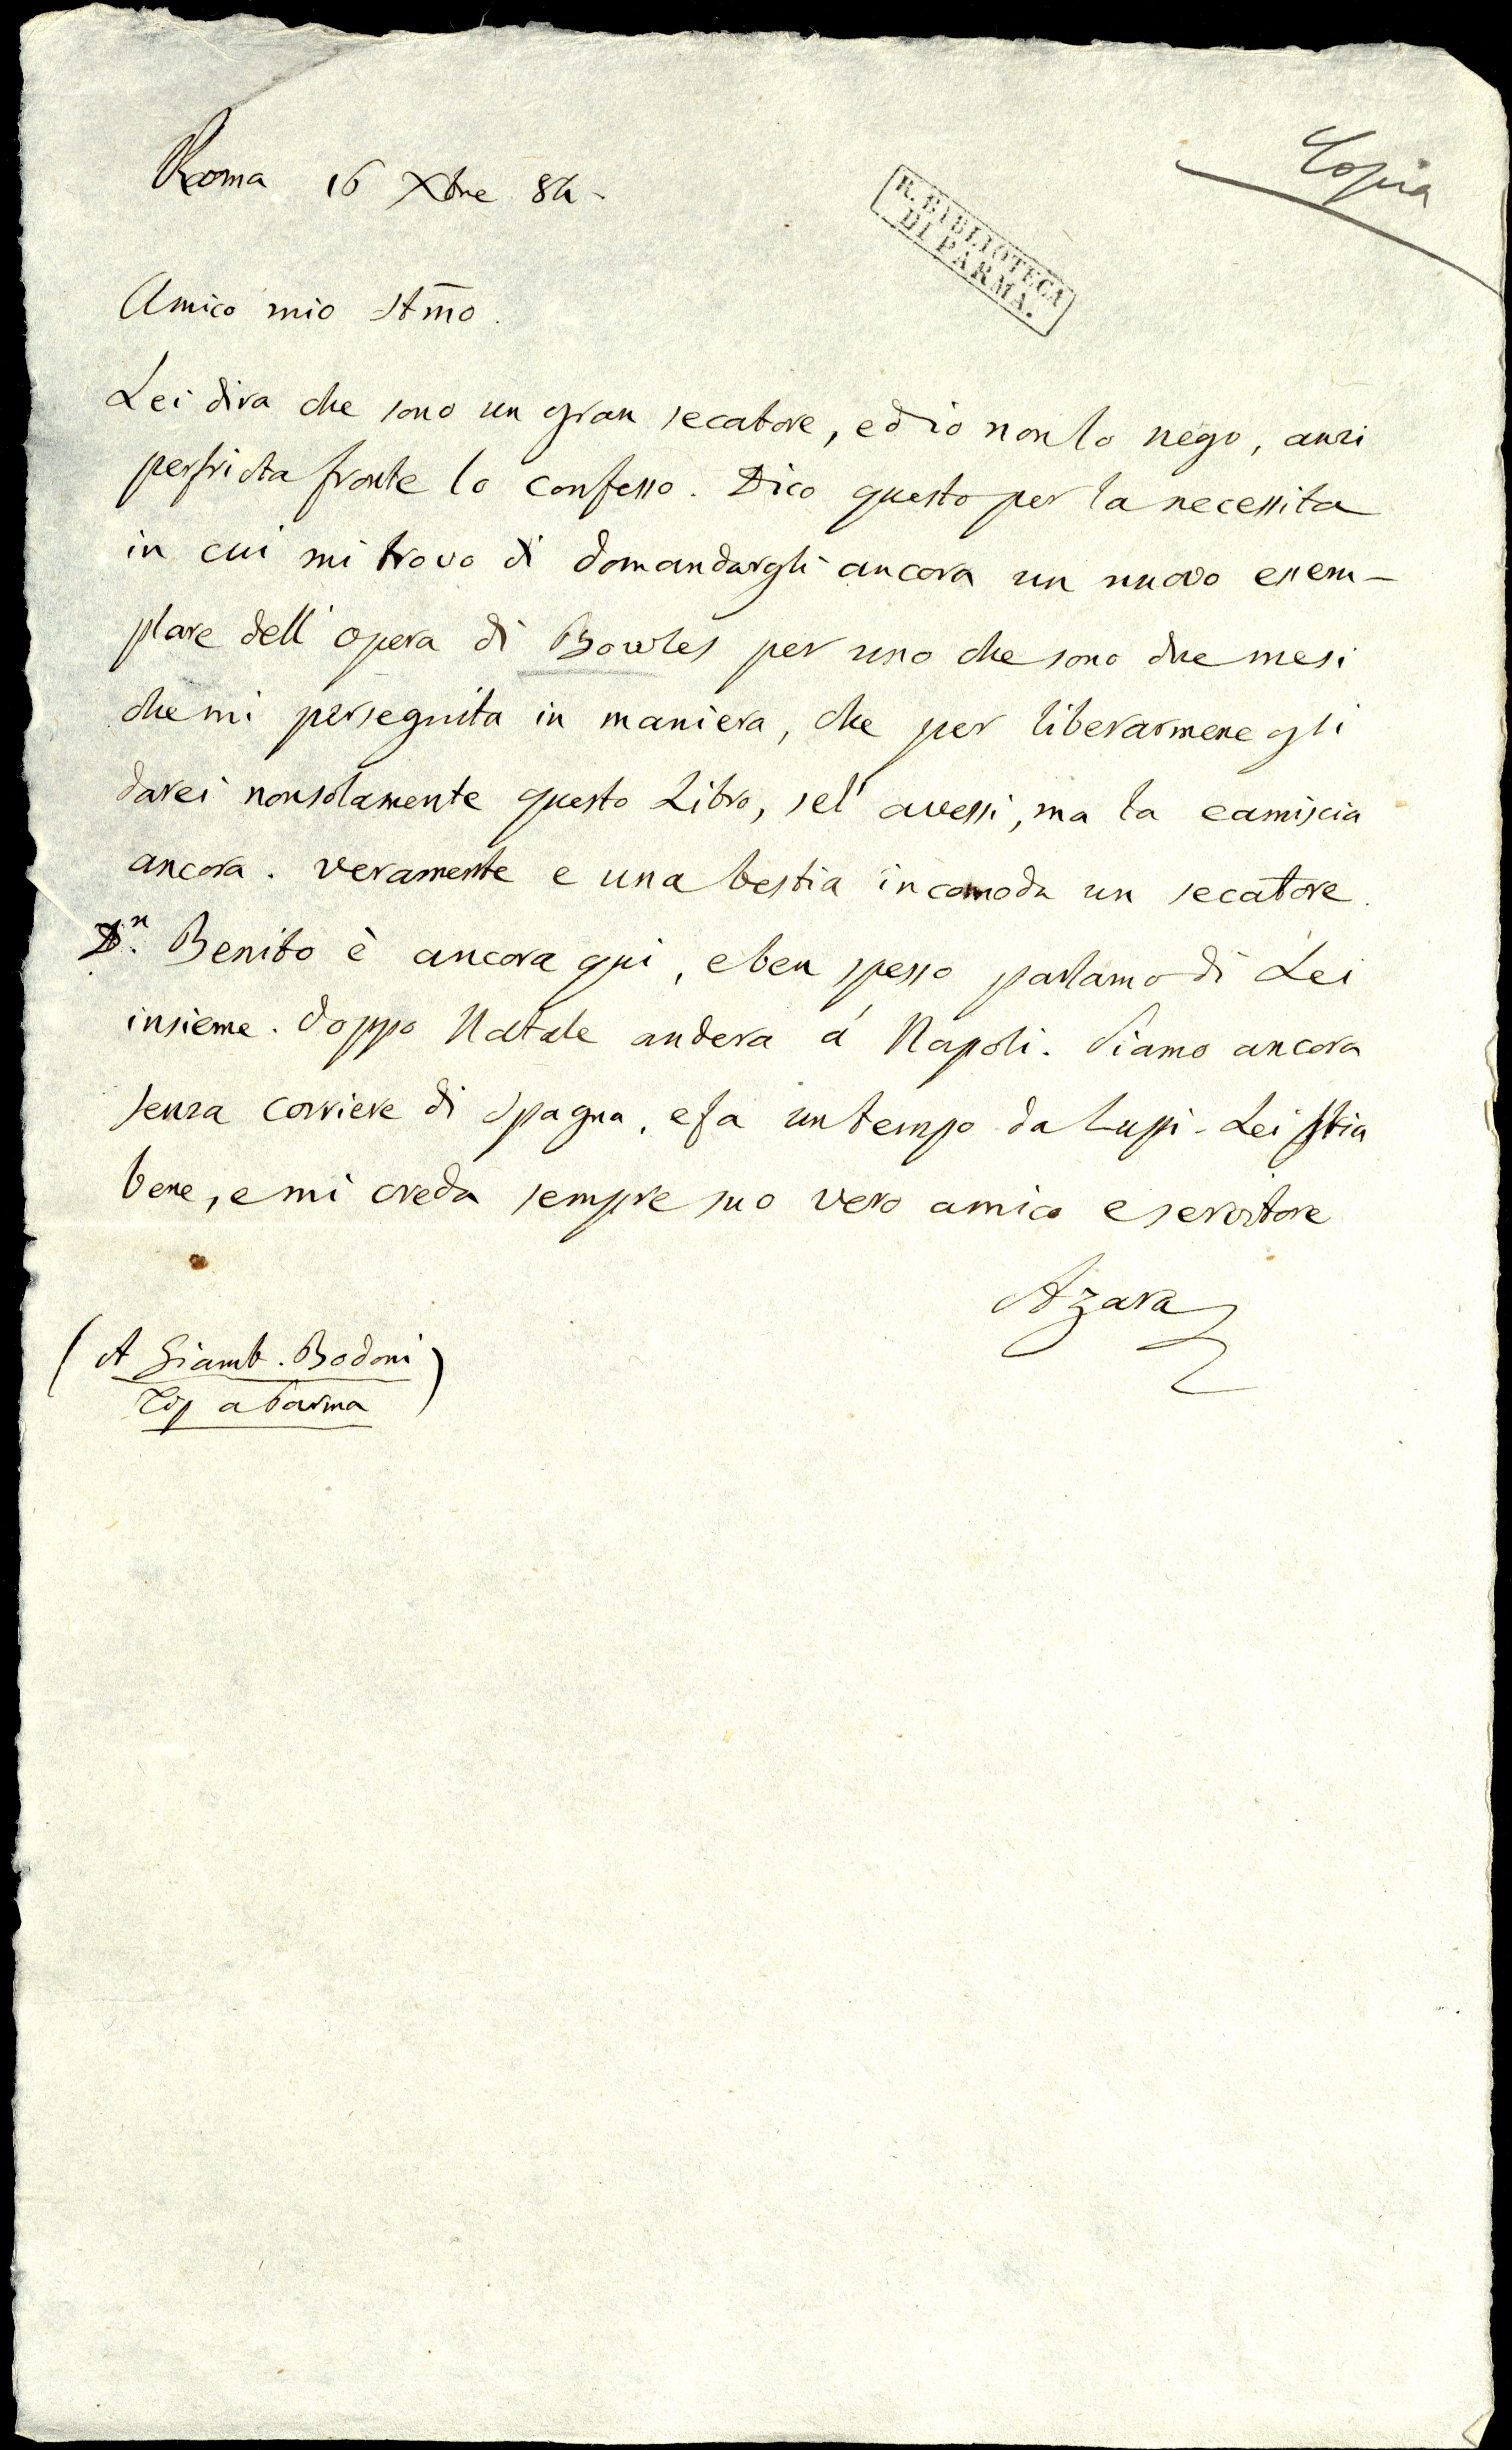 Copia
Roma 16 Xbre 84-
R. BIBLIOTECA
DI PARMA.
Amico mio Stm̃o.
Lei dira che sono un gran secatore, ed io non lo nego, anzi
perfricta fronte lo confesso. Dico questo per la necessita
in cui mi trovo di domandargli ancora un nuovo esem-
plare dell' opera di Bowles per uno che sono due mesi
che mi perseguita in maniera, che per liberarmene gli
darei non solamente questo Libro, se l' avessi, ma la camiscia
ancora. veramente e una bestia incomoda un secatore.
Dn. Benito è ancora qui, e ben spesso parlamo di Lei
insieme. doppo Natale andera á Napoli. Siamo ancora
senza corriere di Spagna, e fa un tempo da Lupi. Lei Stia
bene, e mi creda sempre suo vero amico e servitore
Azara
(A Giamb. Bodoni)
Tip a Parma